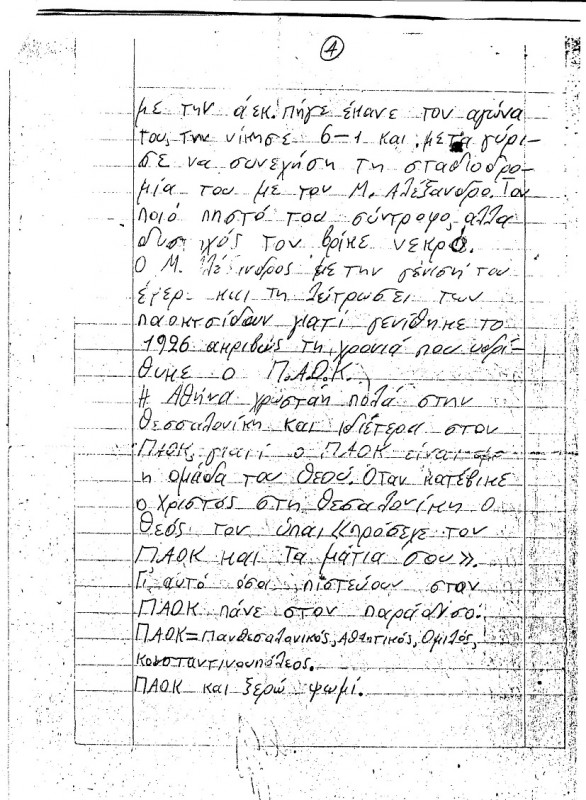 4
με την άεκ. πήγε έκανε τον αγώνα
τους την νίκησε 6-1 και μετα γύρι-
σε να συνεχήση τη σταδιοδρο-
μία του με τον Μ. Αλέξανδρο. Τον
ποιό πηστό του σύντροφο, αλλα
δυστιχός τον βρίκε νεκρό.
Ο Μ. Αλέξανδρος με την γένισή του
έφερε και τη λύτρωσει των
παοκτσίδων γιατί γενίθηκε το
1926 ακριβώς τη χρονιά που ιδρί-
θηκε ο Π.Α.Ο.Κ.
Η Αθήνα χρωστάη πολά στην
Θεσσαλονίκη και ιδιέτερα στον
ΠΑΟΚ, γιατί ο ΠΑΟΚ είναι
η ομάδα του Θεού. Όταν κατέβικε
ο Χριστός στη Θεσαλονίκη ο
Θεός του ύπαι «πρόσεχε τον
ΠΑΟΚ και τα μάτια σου».
Γι αυτό όσοι πιστεύουν σταν
ΠΑΟΚ πάνε στον παράδισο.
ΠΑΟΚ=Πανθεσαλονικός, Αθλητικός, Ομιλός,
Κονσταντινουπόλεος.
ΠΑΟΚ και ξερώ ψωμί.